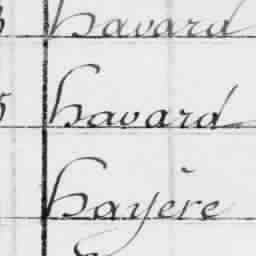 Havard
Havard
Hayère